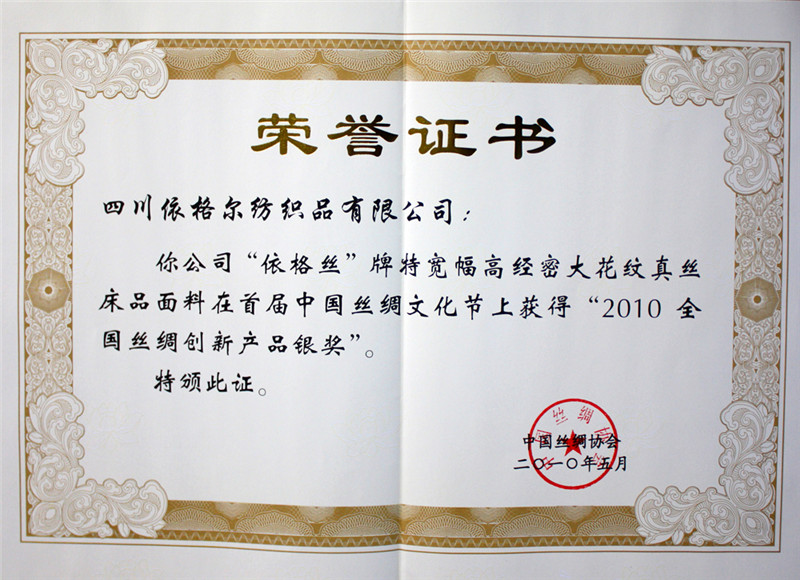 荣誉证书
四川依格尔纺织品有限公司：
你公司“依格丝”牌特宽幅高经密大花纹真丝
床品面料在首届中国丝绸文化节上获得“2010 全
国丝绸创新产品银奖”。
特颁此证。
中国丝绸协会
中国丝绸协会
二〇一〇年五月